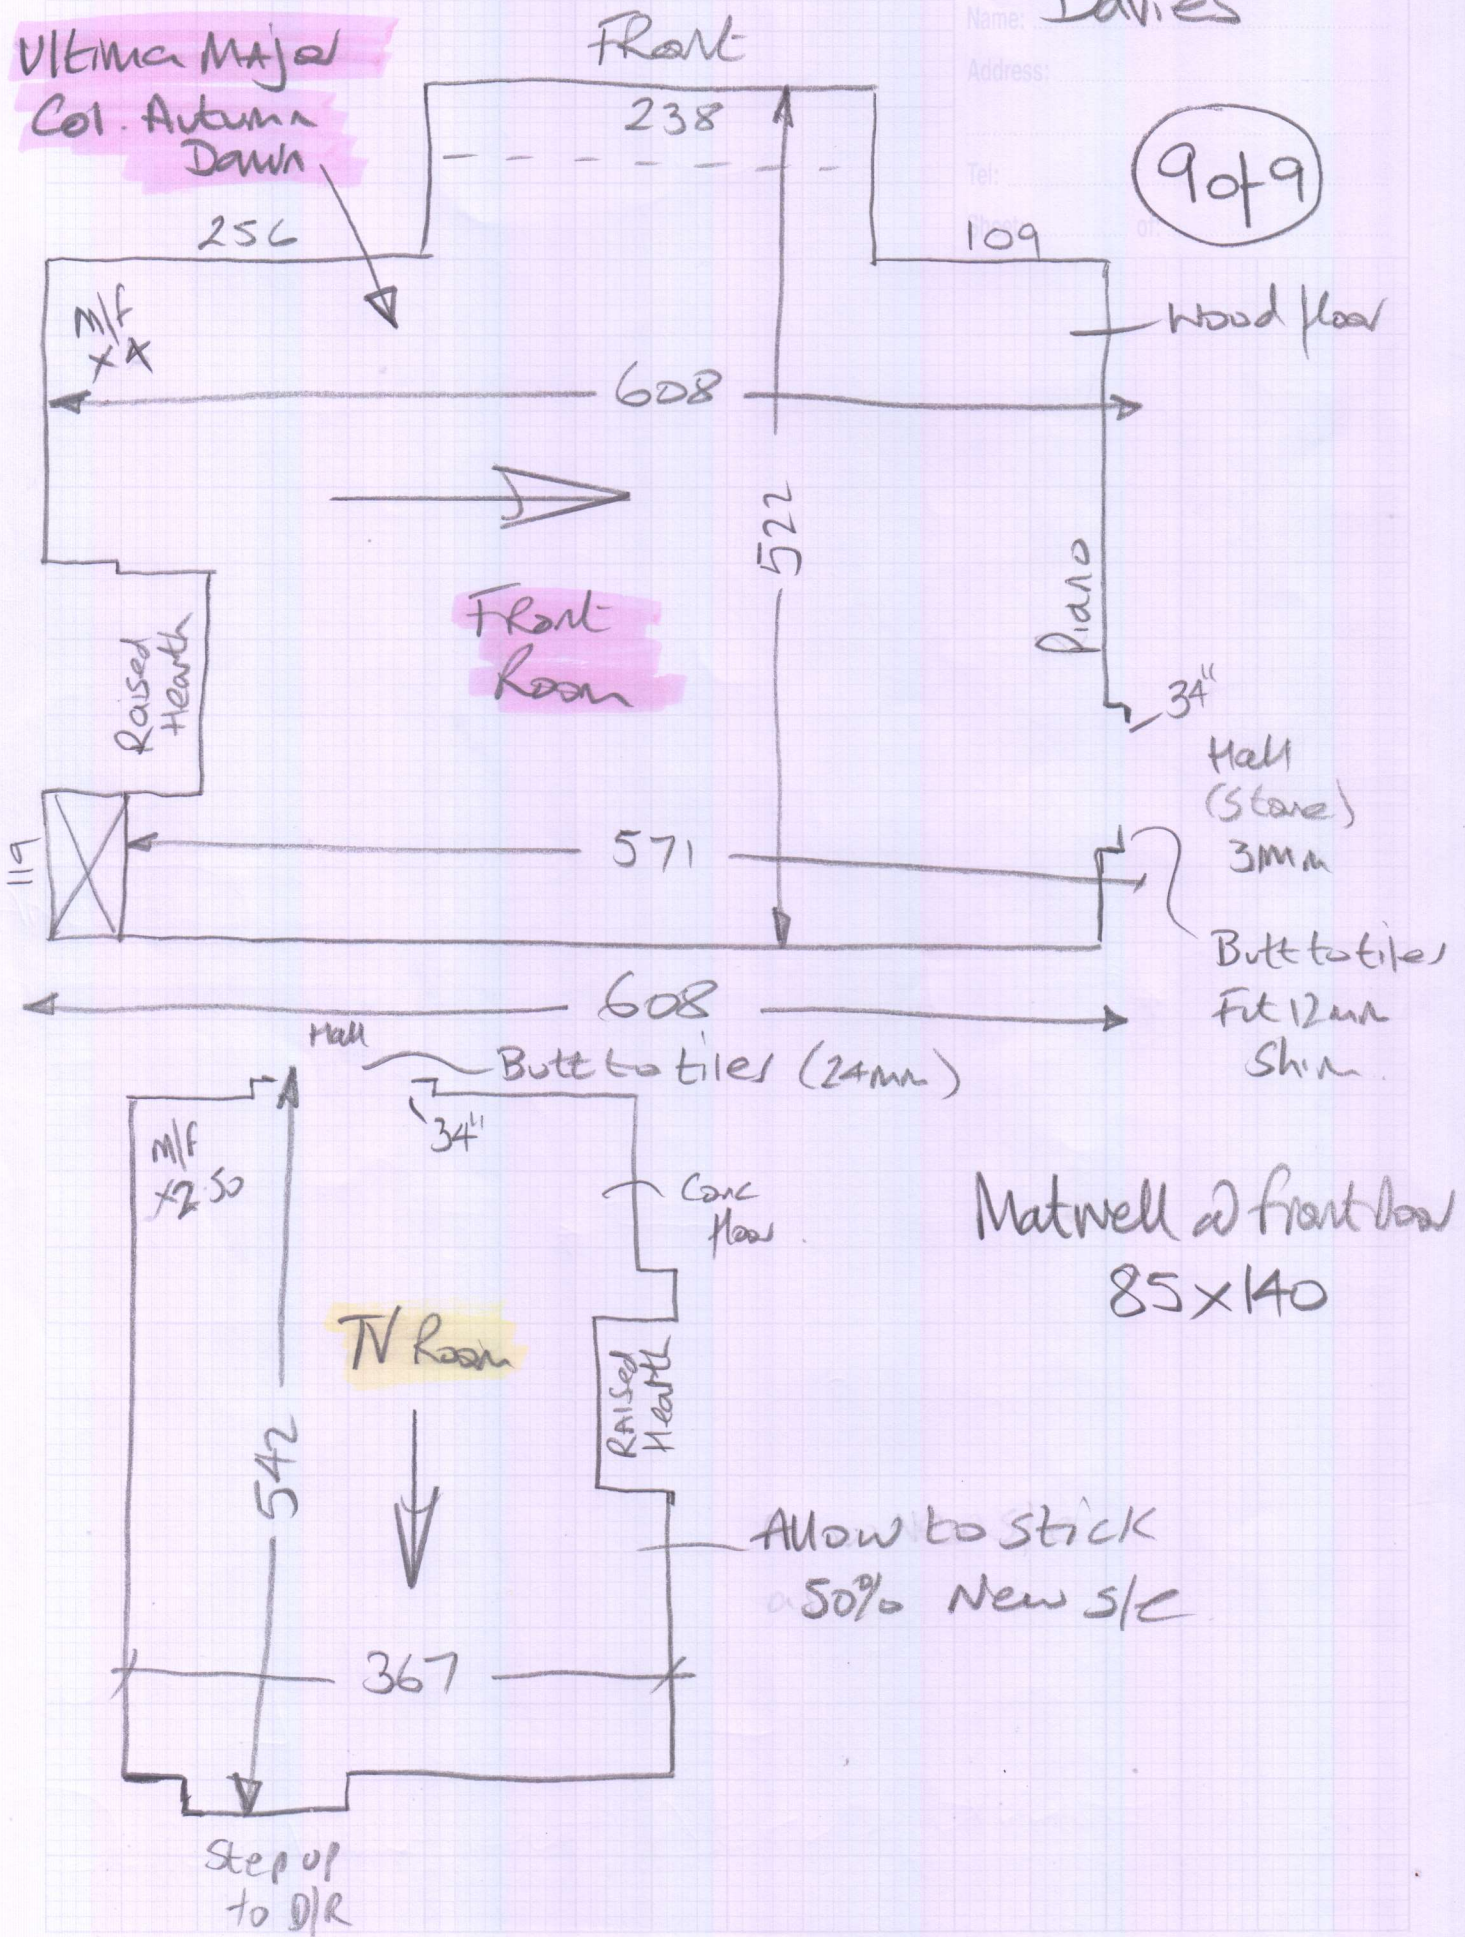 Name: Davies
Address:
Tel:
9 of 9
Ultima Major
Col. Autumn
Dawn
Front
238
256
109
M/F
x 4
Wood floor
608
522
Front
Room
Piano
Raised
Hearth
34"
Hall
(Stone)
3mm
119
571
Butt to tiles
Fit 12mm
Shim
608
Hall
Butt to tiles (24mm)
M/F
x2.50
34"
Conc
floor
Matwell @ front door
85x140
TV Room
Raised
Hearth
542
Allow to stick
50% New s/e
367
Step up
to D/R